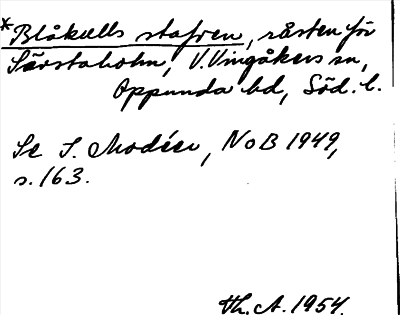 *Blåkulls stafren, råsten för
Särstaholm, V.Vingåkers sn,
Oppunda hd, Söd. l.
Se I. Modéer, NoB 1949,
s.163.
Th. A. 1954.